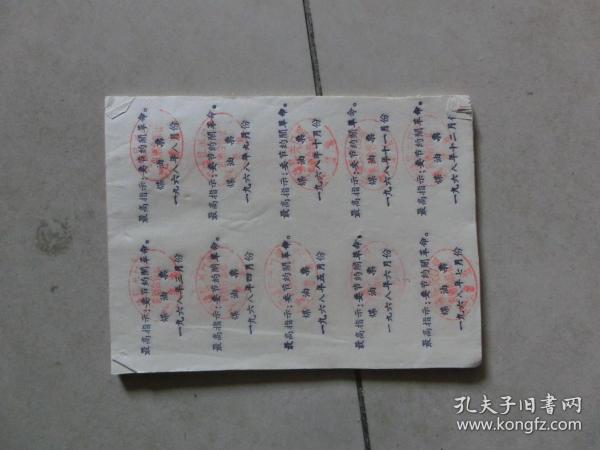 最高指示：要节约闹革命。
煤油票
一九六八年三月份
最高指示：要节约闹革命。
煤油票
一九六八年四月份
最高指示：要节约闹革命。
煤油票
一九六八年五月份
最高指示：要节约闹革命。
煤油票
一九六八年六月份
最高指示：要节约闹革命。
煤油票
一九六八年七月份
最高指示：要节约闹革命。
煤油票
一九六八年八月份
最高指示：要节约闹革命。
煤油票
一九六八年九月份
最高指示：要节约闹革命。
煤油票
一九六八年十月份
最高指示：要节约闹革命。
煤油票
一九六八年十一月份
最高指示：要节约闹革命。
煤油票
一九六八年十二月
孔夫子旧書网
www.kongfz.com